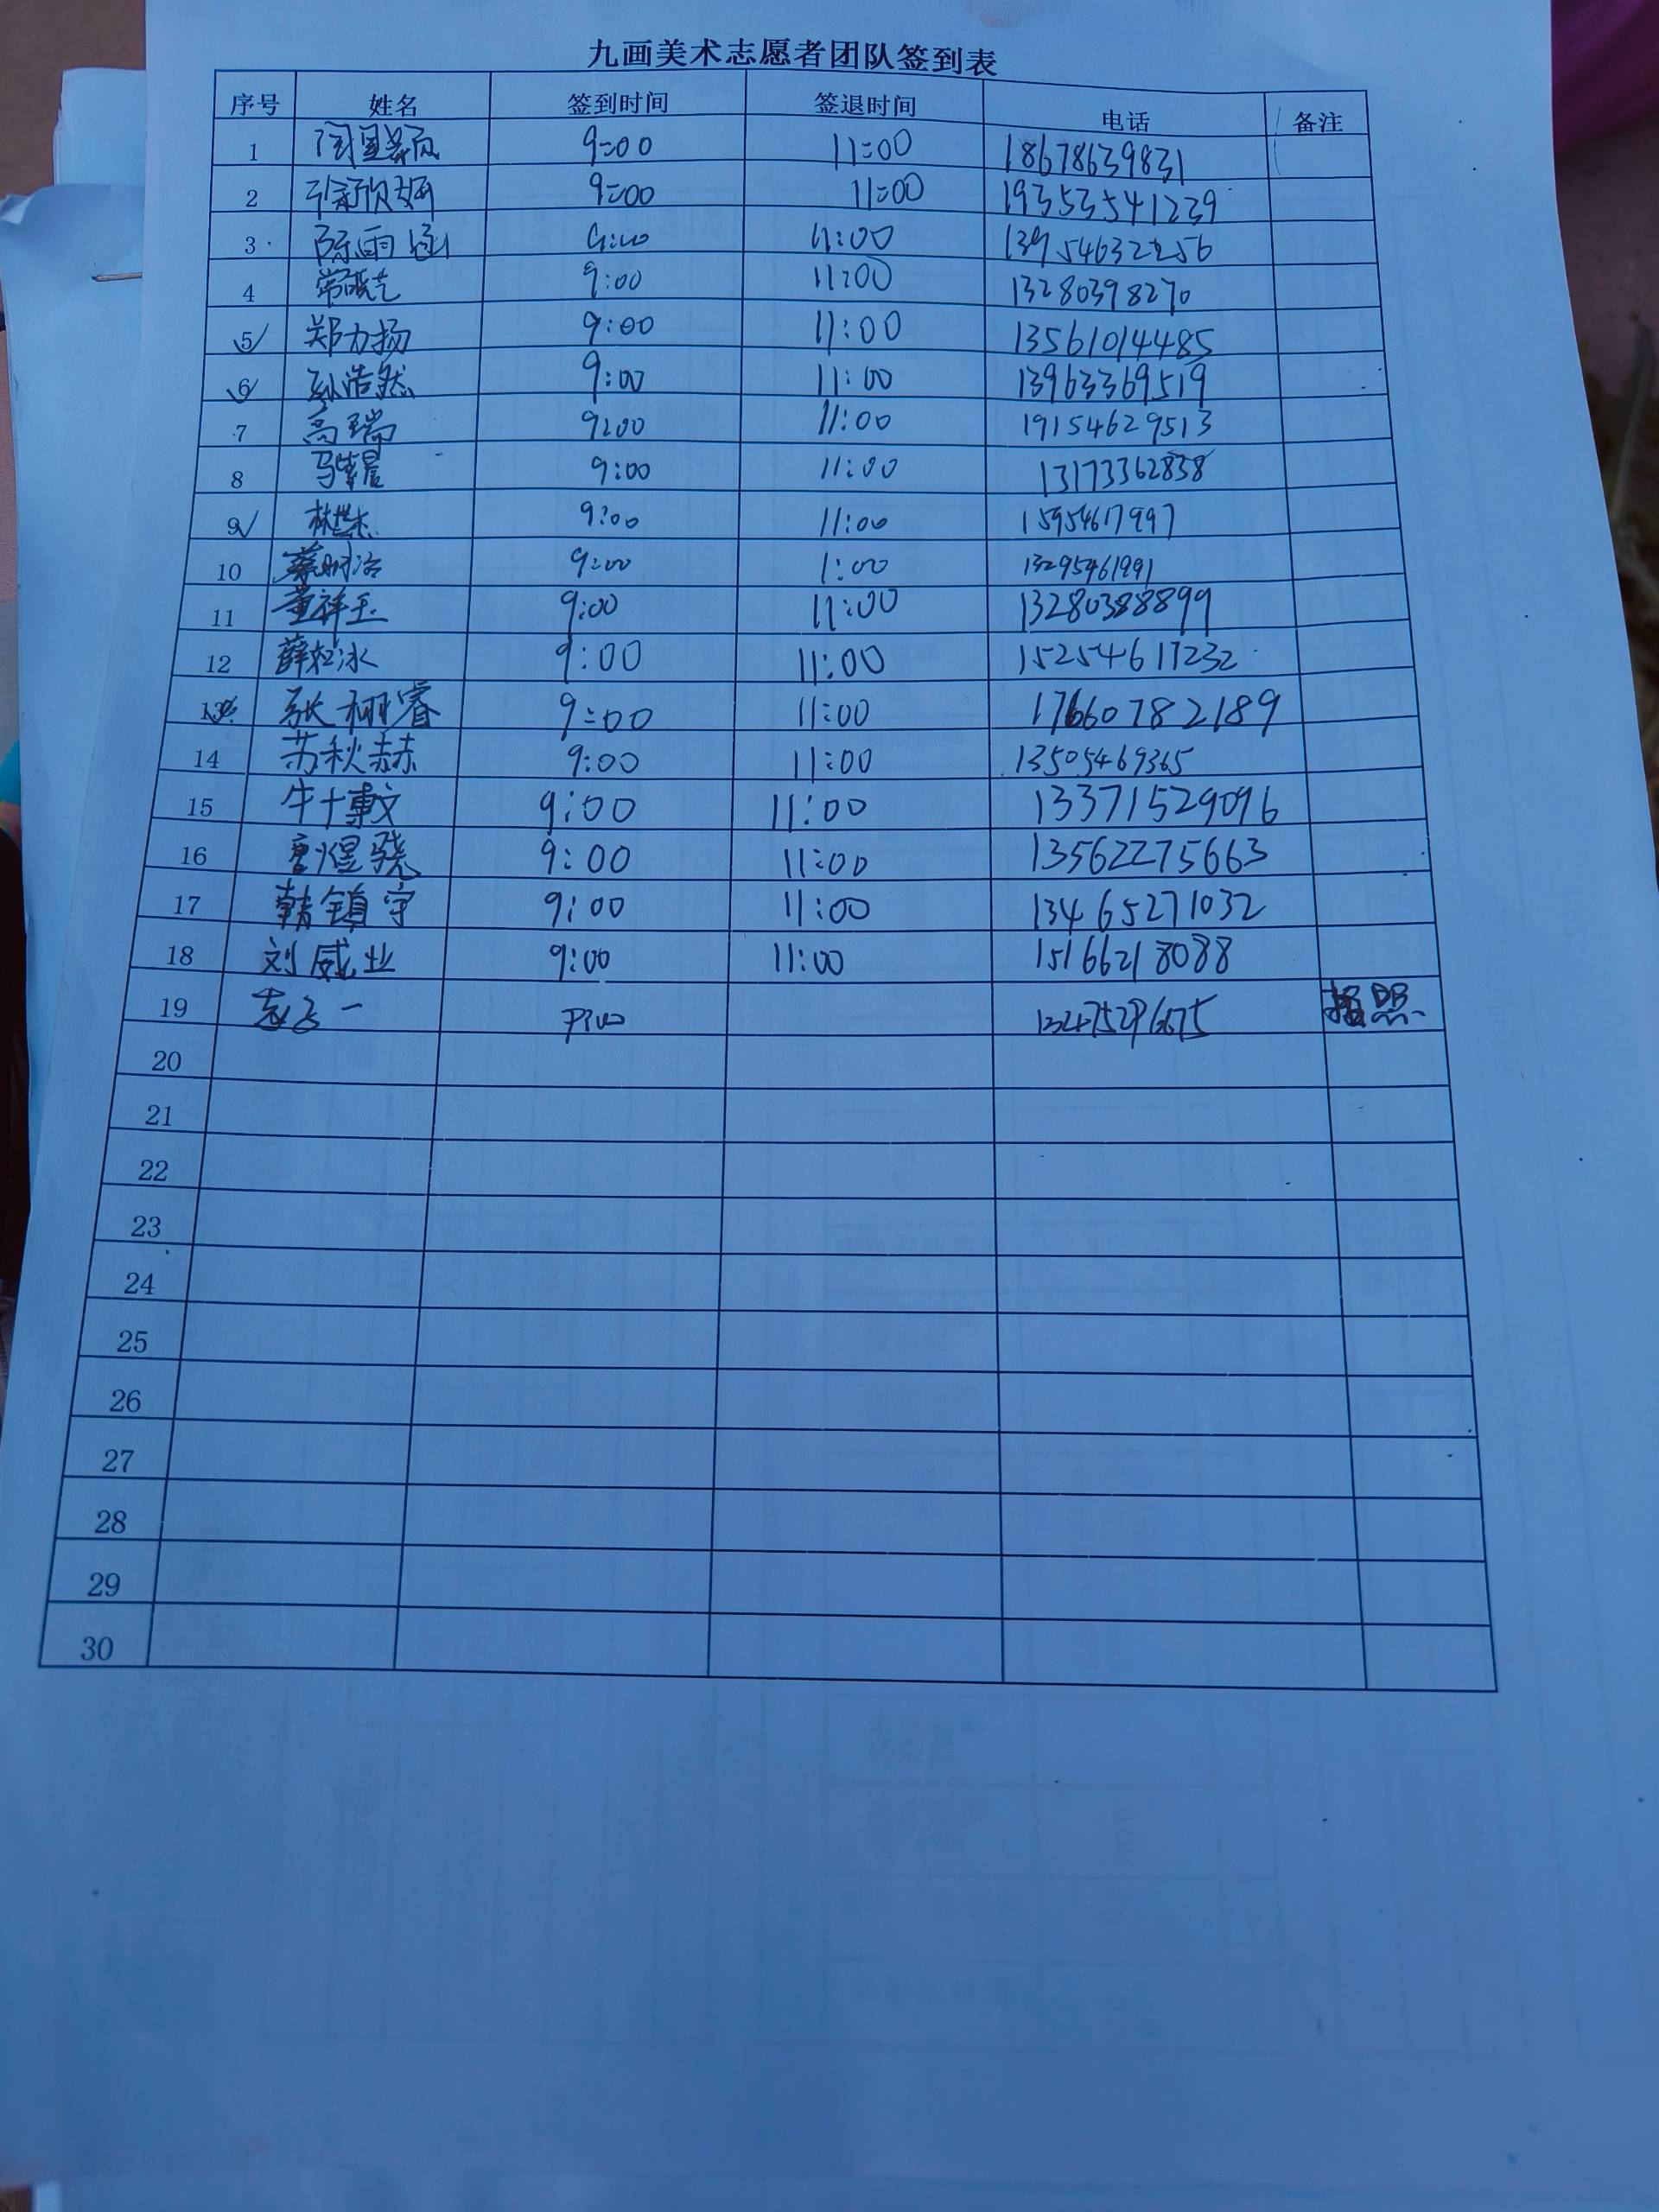 九画美术志愿者团队签到表
序号 姓名 签到时间 签退时间 电话 备注
1 9:00 11:00 18678639831
2 9:00 11:00 19353541239
3 陈雨涵 9:00 11:00 13954632256
4 常晓艺 9:00 11:00 13280398270
5 郑力扬 9:00 11:00 13561014485
6 孙浩然 9:00 11:00 13963369519
7 高瑞 9:00 11:00 19154629513
8 马紫晨 9:00 11:00 13173362838
9 林世杰 9:00 11:00 15954617997
10 蔡明洽 9:00 1:00 13295461991
11 董祥玉 9:00 11:00 13280388899
12 薛松冰 9:00 11:00 15254617232
13 张栩睿 9:00 11:00 17660782189
14 苏秋赫 9:00 11:00 13505469365
15 牛十事文 9:00 11:00 13371529096
16 煜骁 9:00 11:00 13562275663
17 韩镇宇 9:00 11:00 13465271032
18 刘威业 9:00 11:00 15166218088
19 拍照
20
21
22
23
24
25
26
27
28
29
30